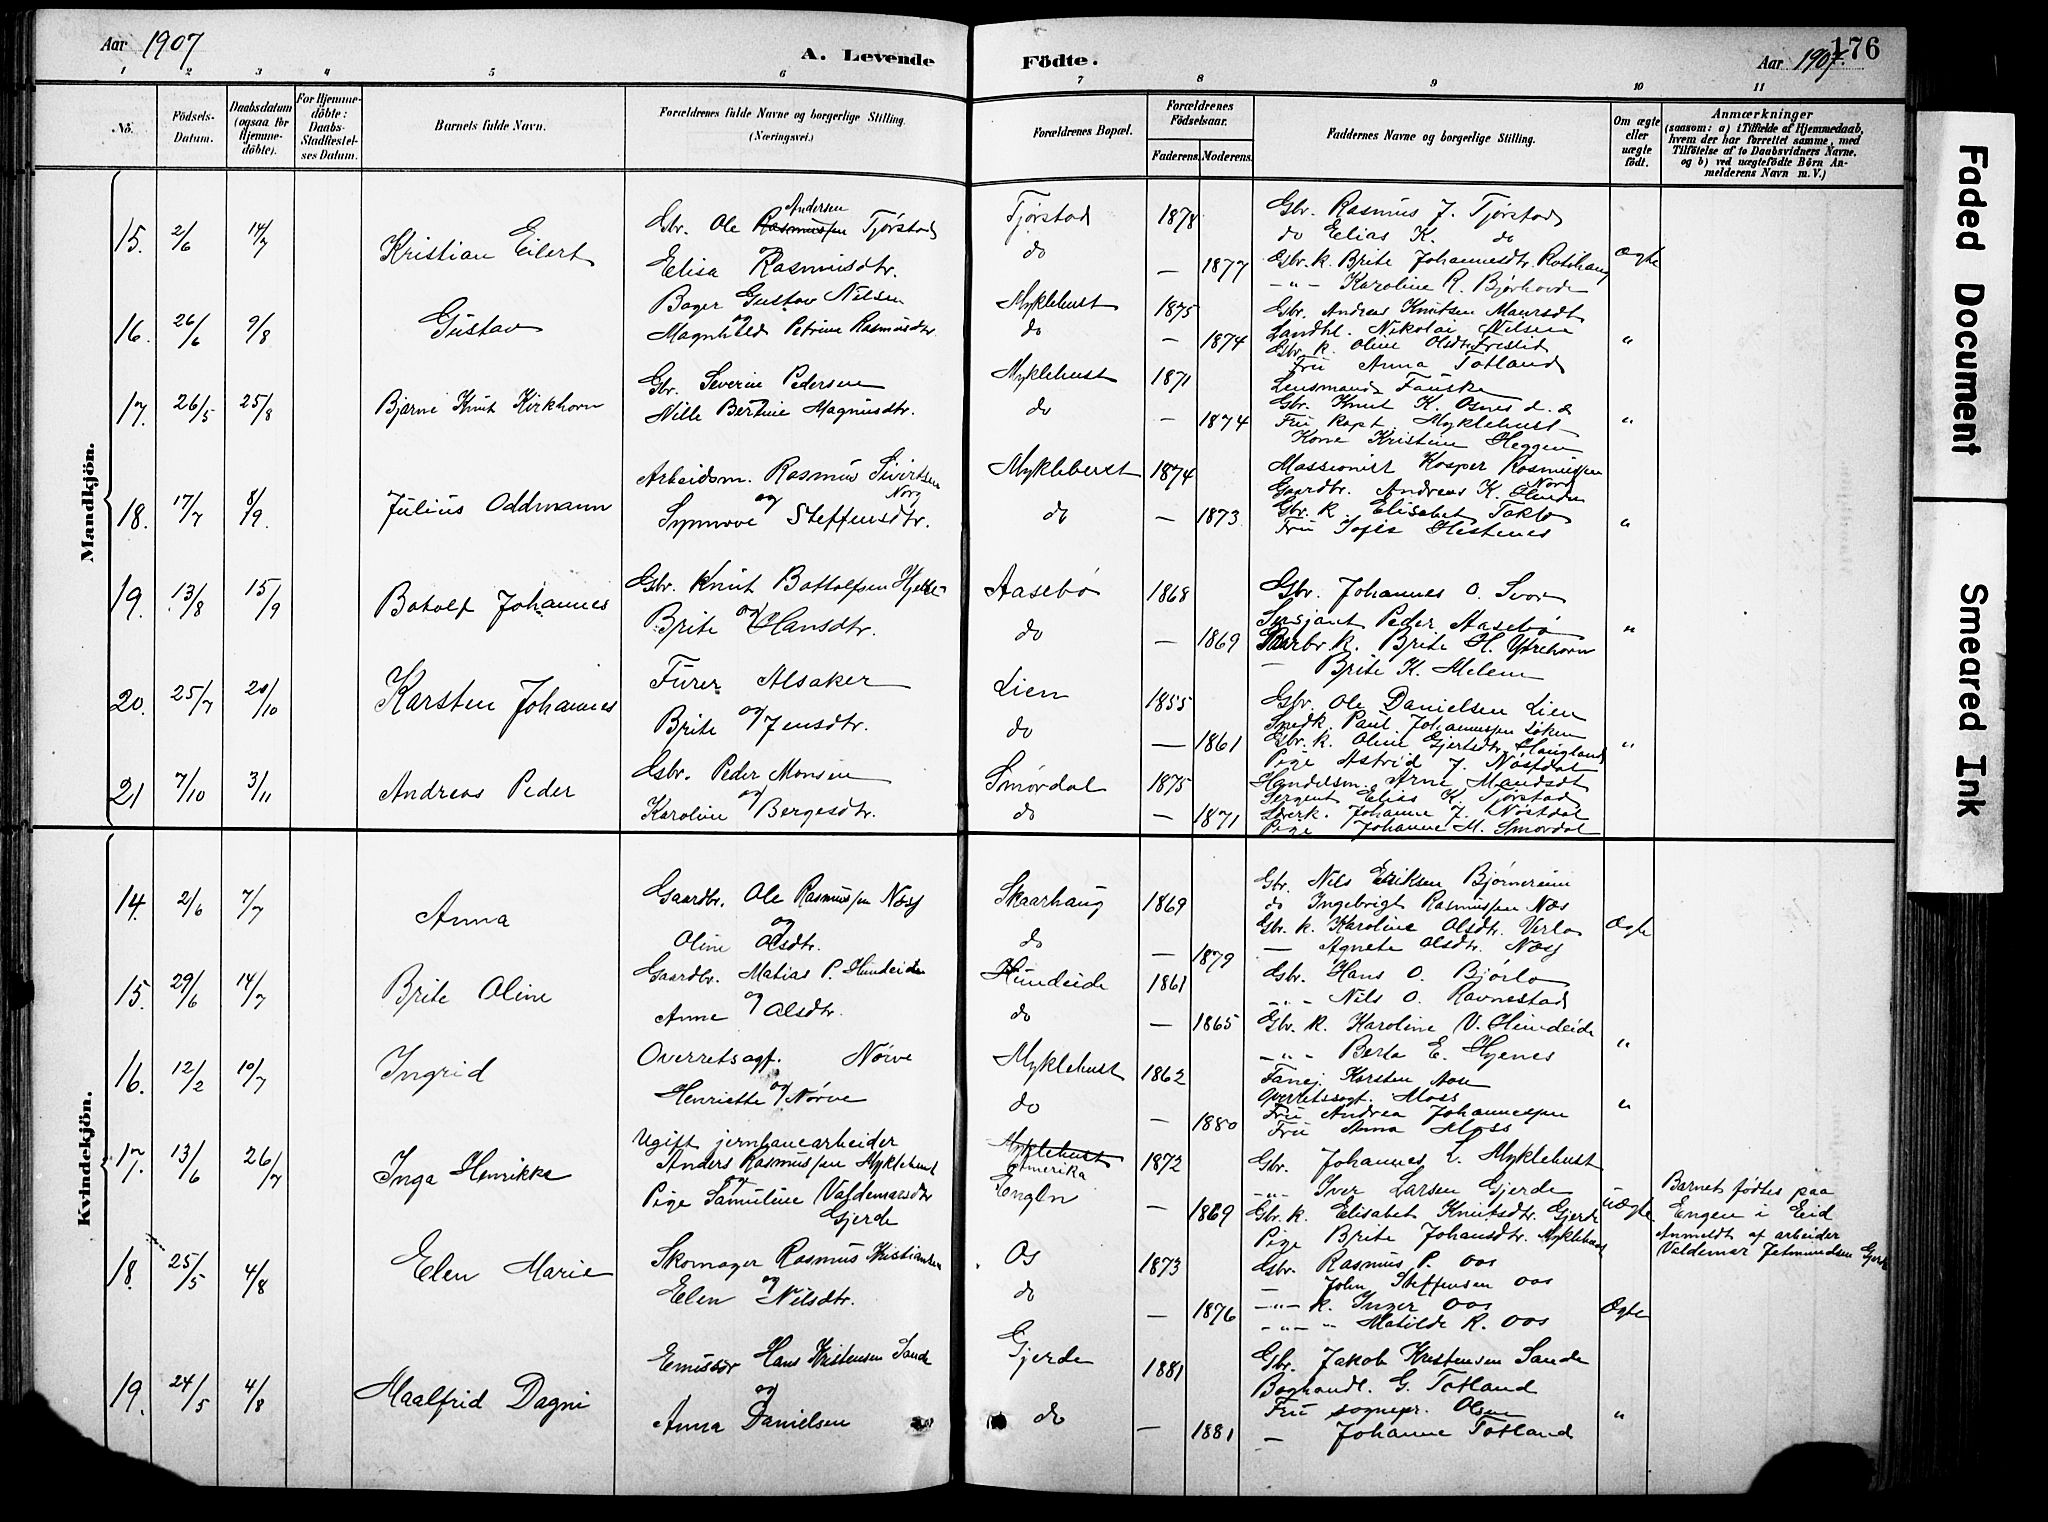 Aar 1907
A. Levende
Födte.
Aar 1907.
176
1 2 3 4 5 6 7 8 9 10 11
No.
Födsels-
Datum.
Daabsdatum
(ogsaa for
Hjemme-
döbte).
For Hjemme-
döbte:
Daabs-
Stadfæstel-
ses Datum.
Barnets fulde Navn.
Forældrenes fulde Navne og borgerlige Stilling.
(Næringsvei.)
Forældrenes Bopæl.
Forældrenes
Födselsaar.
Faderens.
Moderens.
Faddernes Navne og borgerlige Stilling.
Om ægte
eller
uægte
født.
Anmærkninger
(saasom: a) i Tilfælde af Hjemmedaab,
hvem der har forrettet samme, med
Tilföielse af to Daabsvidners Navne,
og b) ved uægtefödte Börn An-
melderens Navn m. V.)
Mandkjön.
15. 2/6 14/7
Kristian Eilert
Andersen
Gbr. Ole Rasmussen Tjørstad
og
Elisa Rasmusdtr.
Tjørstad
do
1878
— 1877
Gbr. Rasmus J. Tjørstad
do Elias K. do
Gbr. k. Brite Johannesdtr. Rotihaug
—"— Karoline R. Bjørhovde
Ægte
16. 26/6 9/8
Gustav
Bager Gustav Nilsen
og
Magnhild Petrine Rasmusdtr.
Myklebust
do
1875
— 1874
Gbr. Andreas Knutsen Maursdt
Landhl. Nikolai Nilsen
Gbr. k. Oline Olsdtr. Fristid
Fru Anna Totland
"
17. 26/5 25/8
Bjarne Knut Kirkhorn
Gbr. Severin Pedersen
Nille Bertine Magnusdtr.
Myklebust
do
1871
— 1874
Lensmand Fauske
Gbr. Knut K. Osnes d. æ
Fru kapt. Myklebust
Kone Kristine Heggen
"
18. 17/7 8/9.
Julius Oddmann
Arbeidsm. Rasmus Sivertsen
Norg
og
Synnove Steffensdtr.
Myklebust
do
1874
— 1873
Massionist Kasper Rasmussen
Norg
Gaardbr. Andreas K.
Gbr. k. Elisabet Taklo
Fru Sofie Hestenes
"
19. 13/8 15/9
Botolf Johannes
Gbr. Knut Bottolfsen Hjelle
og
Brite Hansdtr.
Aasebø
do
1868
— 1869
Gbr. Johannes O. Svor
Sersjant Peder Aasebø
Gaarbr. k. Brite H. Ytrehorn
— Brite K. Melem
"
20. 25/7 20/10
Karsten Johannes
Furer Alsaker
og
Brite Jensdtr.
Lien
do
1855
— 1861
Gbr. Ole Danielsen Lien
Snedk. Paul Johannessen Løken
Gbr. k. Oline Gjertsdtr. Haugland
Pige Astrid J. Nøstdal
"
21 7/10 3/11
Andreas Peder
Gbr. Peder Monsen
og
Karoline Bergesdtr.
Smørdal
do
1875
— 1871
Handelsm. Arne Mandsdt
Sergent Elias K. Tjørstad
Johanne J. Nøstdal
Pige Johanne M. Smørdal
Kvindekjön.
14. 2/6 7/7
Anna
Gaardbr. Ole Rasmussen Næs
og
Oline Olsdtr.
Skaarhaug
do
1869
— 1879
Gbr. Nils Eriksen Bjørnereim
do Ingebrigt Rasmussen Næs
Gbr. k. Karoline Olsdtr. Verlo
— Agnete Olsdtr. Næss
Ægte
15. 29/6 14/7
Brite Oline
Gaardbr. Matias P. Hundeide
og
Anne Olsdtr.
Hundeide
do
1861
— 1865
Gbr. Hans O. Bjørlo
—"— Nils O. Ravnestad
Gbr. k. Karoline V. Hundeide
—"— Berta E. Hjenes
"
16. 12/2 10/7
Ingrid
Overretsagf. Nørve
og
Henriette Nørve
Myklebust
do
1862
— 1880
Fanej. Karsten Aase
Overretssagf. Moss
Fru Andrea Johannessen
Fru Anna Moss
"
17. 13/6 26/7
Inga Henrikke
Ugift jernbanearbeider
Anders Rasmussen Myklebust
og
Pige Samuline Valdemarsdtr
Gjerde
Myklebust
Amerika
Engen
1872
— 1869
Gbr. Johannes L. Myklebust
—"— Iver Larsen Gjerde
Gbr. k. Elisabet Knutsdtr. Gjerde
Pige Brite Johansdtr. Myklebust
uægte
Barnet fødtes paa
Engen i Eid
Anmeldt af arbeider
Valdemar Jetmundsen Gjerde
18. 25/5 4/8
Elen Marie
Skomager Rasmus Kristiansen
og
Elen Nilsdtr.
Os
do
1873
— 1876
Gbr. Rasmus P. Oos
— John Steffensen Oos
—"— k. Inger Oos
—"— " Matilde R. Oos
Ægte
19. 24/5 4/8
Maalfrid Dagni
Emissær Hans Kristensen Sande
og
Anna Danielsen
Gjerde
do
1881
— 1881
Gbr. Jakob Kristensen Sande
Boghandl. G. Totland
Fru sognepr. Olsen
— Johanne Totland
"
Faded Document
Smeared Ink